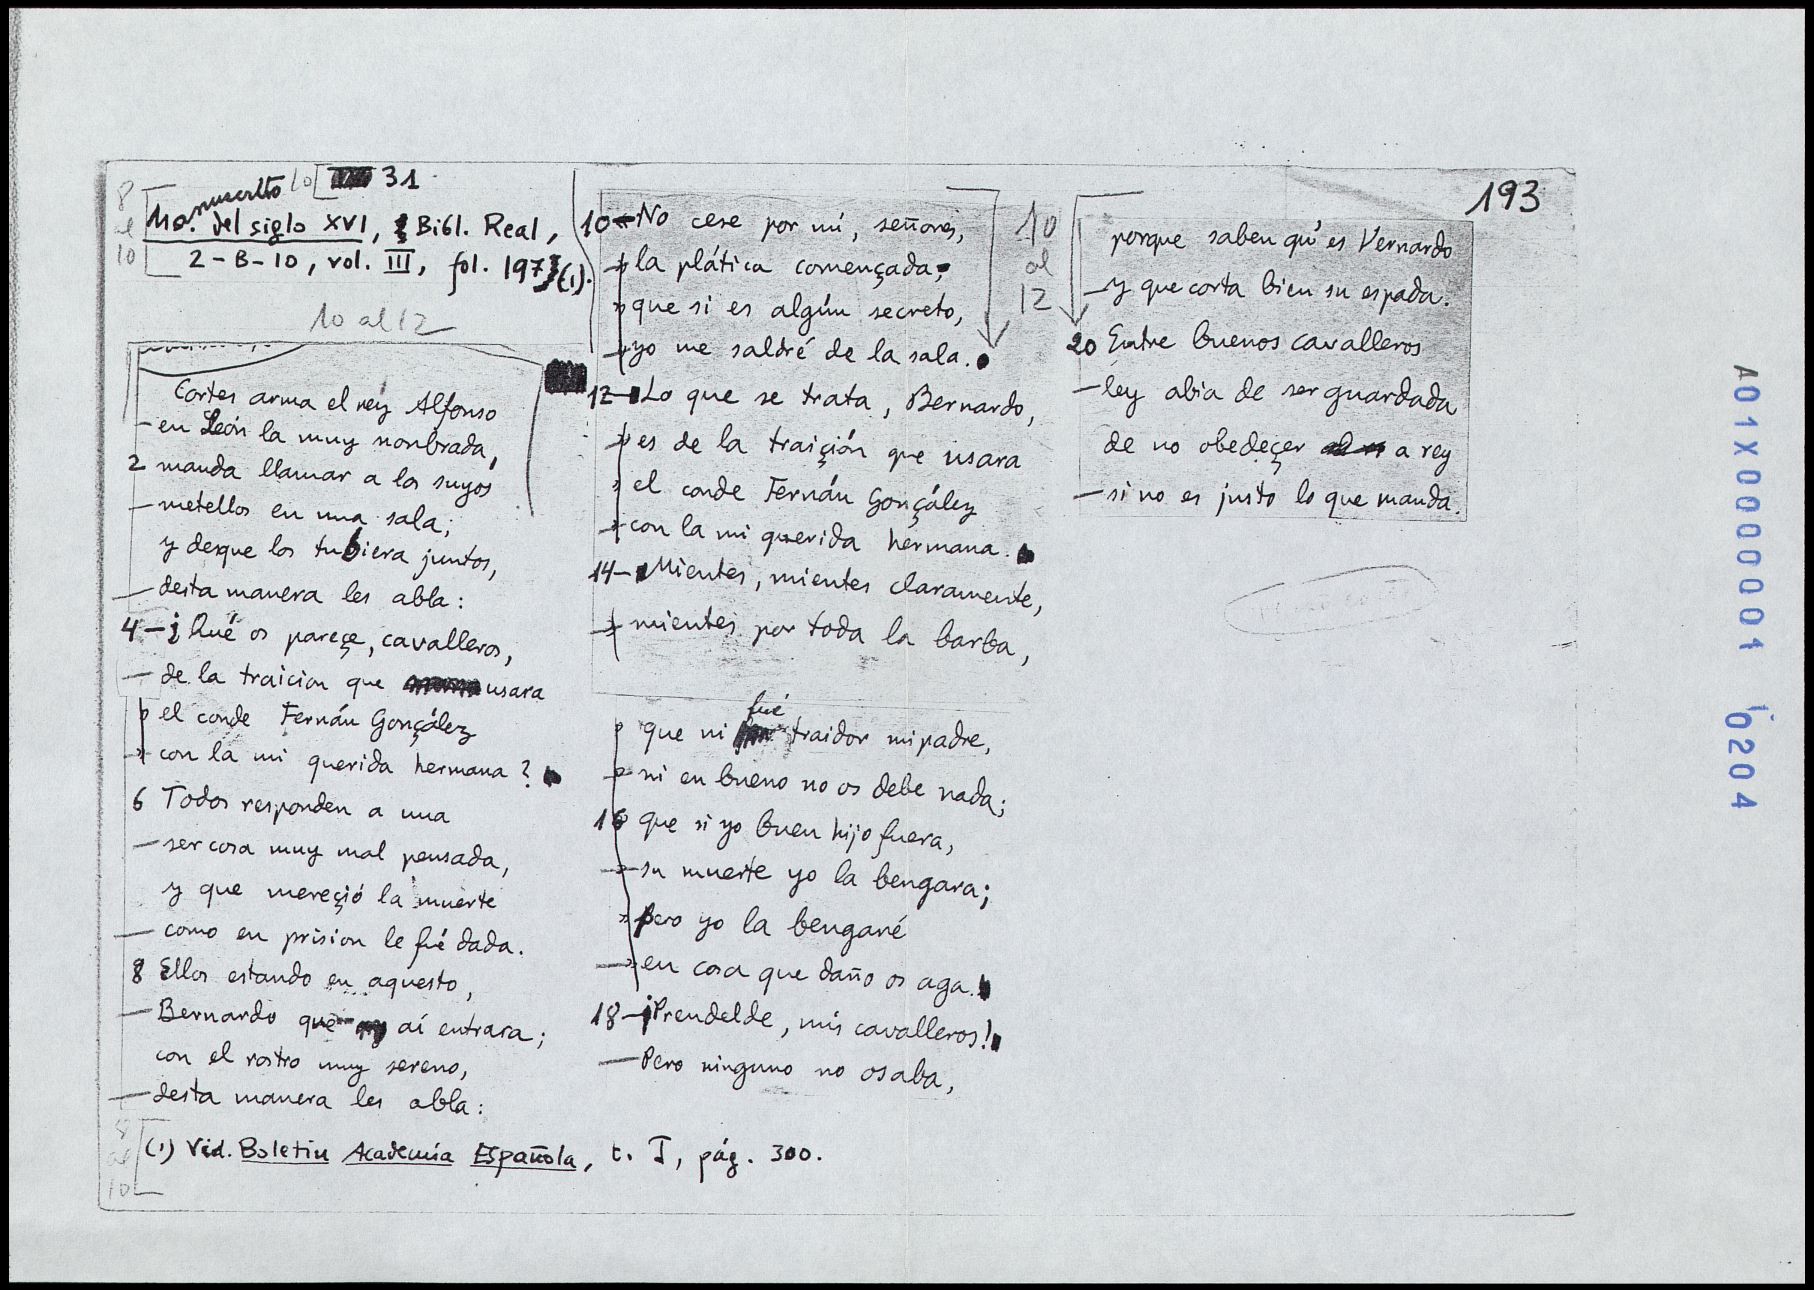 31
Manuscrito del siglo XVI, Bibl. Real,
2-B-10, vol. III, fol. 197 (1).
8
al
10
10 al 12
Cortes arma el rey Alfonso
—en León la muy nonbrada,
2 manda llamar a los suyos
—metellos en una sala;
y desque los tubiera juntos,
—desta manera les abla:
4 —¿Qué os pareçe, cavalleros,
—de la traicion que usara
» el conde Fernán Gonçález
» con la mi querida hermana?
6 Todos responden a una
—ser cosa muy mal pensada,
y que mereçió la muerte
—como en prision le fué dada.
8 Ellos estando en aquesto,
—Bernardo que aí entrara;
con el rostro muy sereno,
—desta manera les abla:
8
al
10
(1) Vid. Boletin Academia Española, t. I, pág. 300.
10 —No cese por mí, señores,
» la plática començada;
» que si es algún secreto,
» yo me saldré de la sala.
12 —Lo que se trata, Bernardo,
» es de la traiçión que usara
» el conde Fernán Gonçález
» con la mi querida hermana.
14 —Mientes, mientes claramente,
» mientes por toda la barba,
» que ni fué traidor mi padre,
» ni en bueno no os debe nada;
16 que si yo buen hijo fuera,
» su muerte yo la bengara;
» pero yo la bengaré
» en cosa que daño os aga.
18 —¡Prendelde, mis cavalleros!
—Pero ninguno no osaba,
10
al
12
193
porque saben qu'es Vernardo
—y que corta bien su espada.
20 Entre buenos cavalleros
—ley abia de ser guardada
de no obedeçer a rey
—si no es justo lo que manda.
A01X0000001
0204